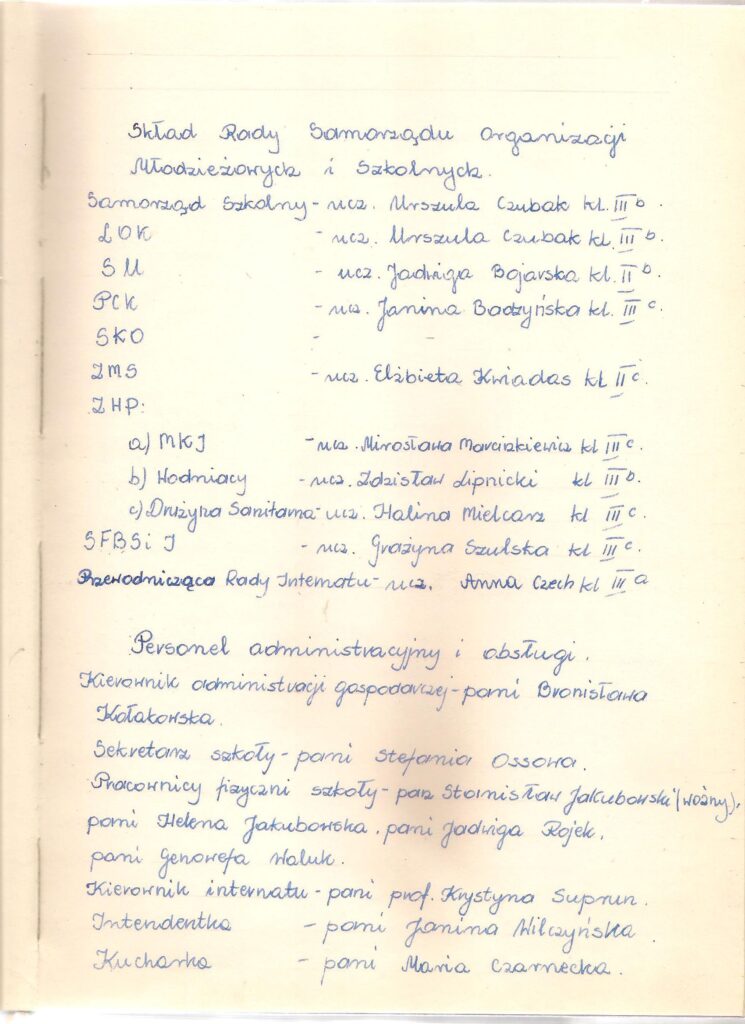 Skład Rady Samorządu Organizacji
Młodzieżowych i Szkolnych.
Samorząd Szkolny - ucz. Urszula Czubak kl. III b.
LOK - ucz. Urszula Czubak kl. III b.
SU - ucz. Jadwiga Bojarska kl. II b.
PCK - ucz. Janina Badzyńska kl. III c.
SKO -
ZMS - ucz. Elżbieta Kwiadas kl II c.
ZHP:
a) MKJ - ucz. Mirosława Marciszkiewicz kl III c.
b) Wodniacy - ucz. Zdzisław Lipnicki kl III b.
c) Drużyna Sanitarna - ucz. Halina Mielcarz kl III c.
SFBSi J - ucz. Grażyna Szulska kl III c.
Przewodnicząca Rady Internatu - ucz. Anna Czech kl III a
Personel administracyjny i obsługi.
Kierownik administracji gospodarczej - pani Bronisława
Kołakowska.
Sekretarz szkoły - pani Stefania Ossowa.
Pracownicy fizyczni szkoły - pan Stanisław Jakubowski (woźny),
pani Helena Jakubowska, pani Jadwiga Rojek,
pani Genowefa Waluk.
Kierownik internatu - pani prof. Krystyna Suprun.
Intendentka - pani Janina Wilczyńska.
Kucharka - pani Maria Czarnecka.